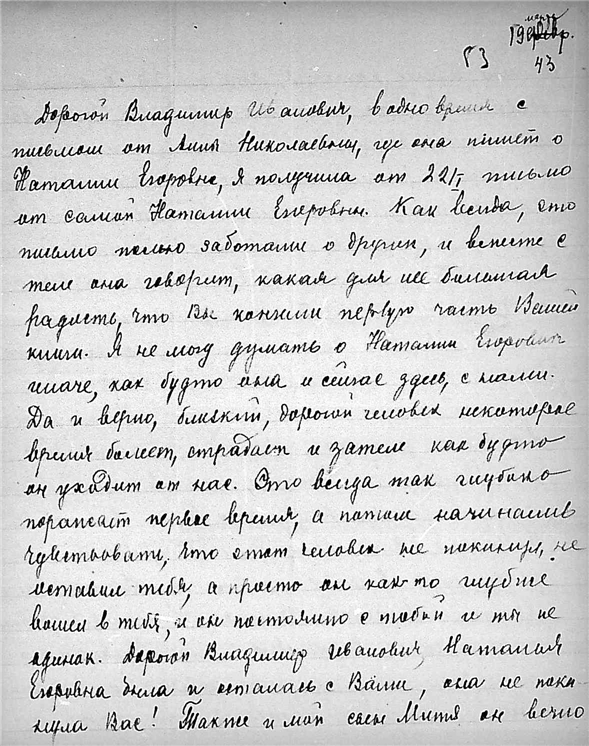 март
19 февр.
53
43
Дорогой Владимир Иванович, в одно время с
письмом от Анны Николаевны, где она пишет о
Наталии Егоровне, я получила от 22/I письмо
от самой Наталии Егоровны. Как всегда, это
письмо полно заботами о других, и вместе с
тем она говорит, какая для нее большая
радость, что Вы кончили первую часть Вашей
книги. Я не могу думать о Наталии Егоровне
иначе, как будто она и сейчас здесь, с нами.
Да и верно, близкий, дорогой человек некоторое
время болеет, страдает и затем как будто
он уходит от нас. Это всегда так глубоко
поражает первое время, а потом начинаешь
чувствовать, что этот человек не покинул, не
оставил тебя, а просто он как-то глубже
вошел в тебя, и он постоянно с тобой и ты не
одинок. Дорогой Владимир Иванович, Наталия
Егоровна была и осталась с Вами, она не поки-
нула Вас! Также и мой сын Митя он вечно